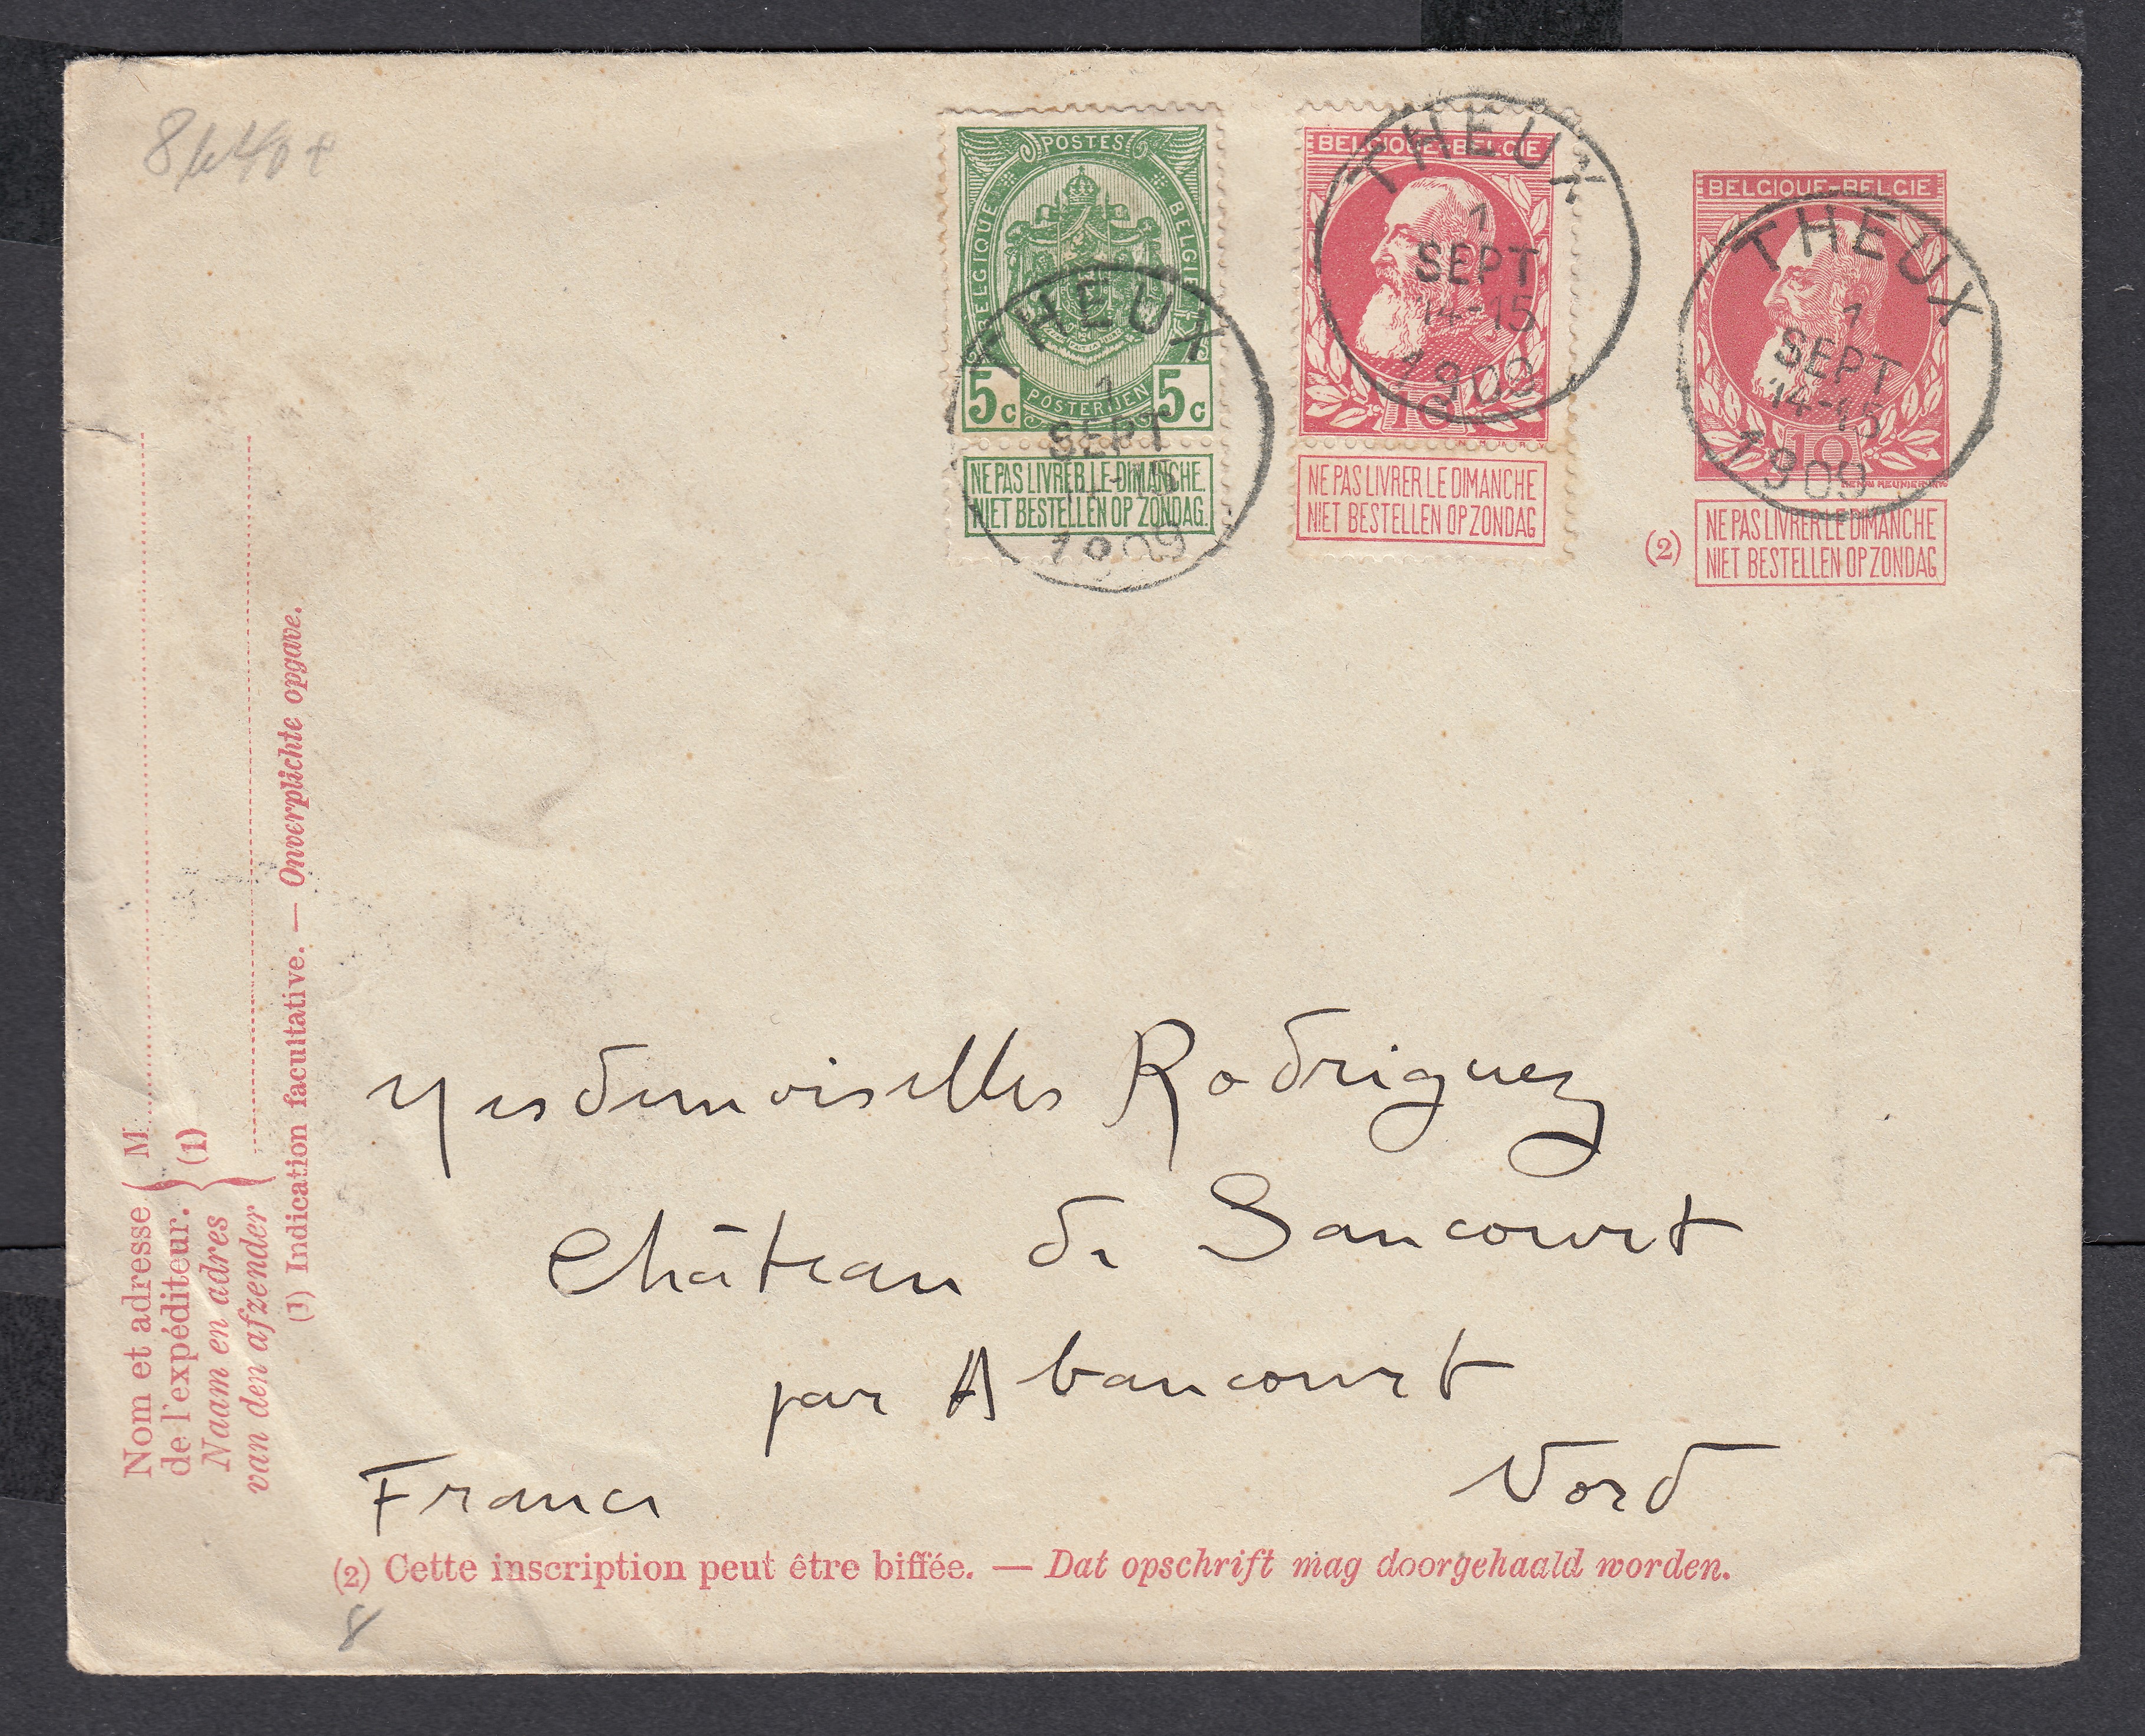 8
POSTES
BELGIQUE
BELGIË
5c
POSTERIJEN
5c
NE PAS LIVRER LE DIMANCHE.
NIET BESTELLEN OP ZONDAG.
THEUX
1
SEPT
14-15
1909
BELGIQUE-BELGIE
10
NE PAS LIVRER LE DIMANCHE
NIET BESTELLEN OP ZONDAG
THEUX
1
SEPT
14-15
1909
BELGIQUE-BELGIE
10
(2)
NE PAS LIVRER LE DIMANCHE
NIET BESTELLEN OP ZONDAG
THEUX
1
SEPT
14-15
1909
Nom et adresse
de l'expéditeur.
Naam en adres
van den afzender
M
(1)
(1) Indication facultative. — Onverplichte opgave.
Mesdemoiselles Rodriguez
Château de Sancourt
par Abancourt
Nord
France
(2) Cette inscription peut être biffée. — Dat opschrift mag doorgehaald worden.
8